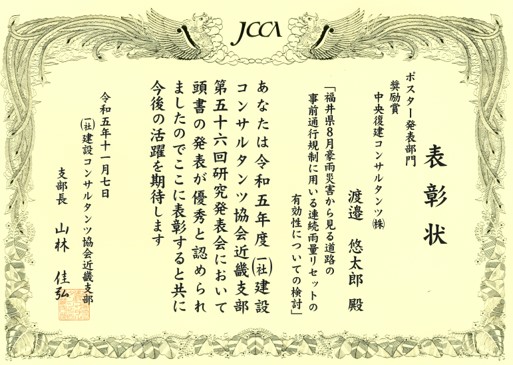 JCCA
表彰状
ポスター発表部門
奨励賞
中央復建コンサルタンツ㈱
渡邉 悠太郎 殿
「福井県8月豪雨災害から見る道路の
事前通行規制に用いる連続雨量リセットの
有効性についての検討」
あなたは令和五年度(一社)建設
コンサルタンツ協会近畿支部
第五十六回研究発表会において
頭書の発表が優秀と認められ
ましたのでここに表彰すると共に
今後の活躍を期待します
令和五年十一月七日
(一社)建設コンサルタンツ協会近畿支部
支部長 山林 佳弘